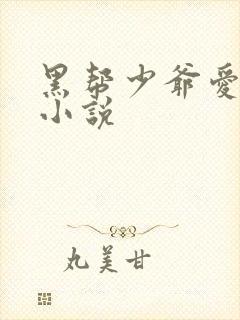 黑帮少爷愛
小說
丸美甘